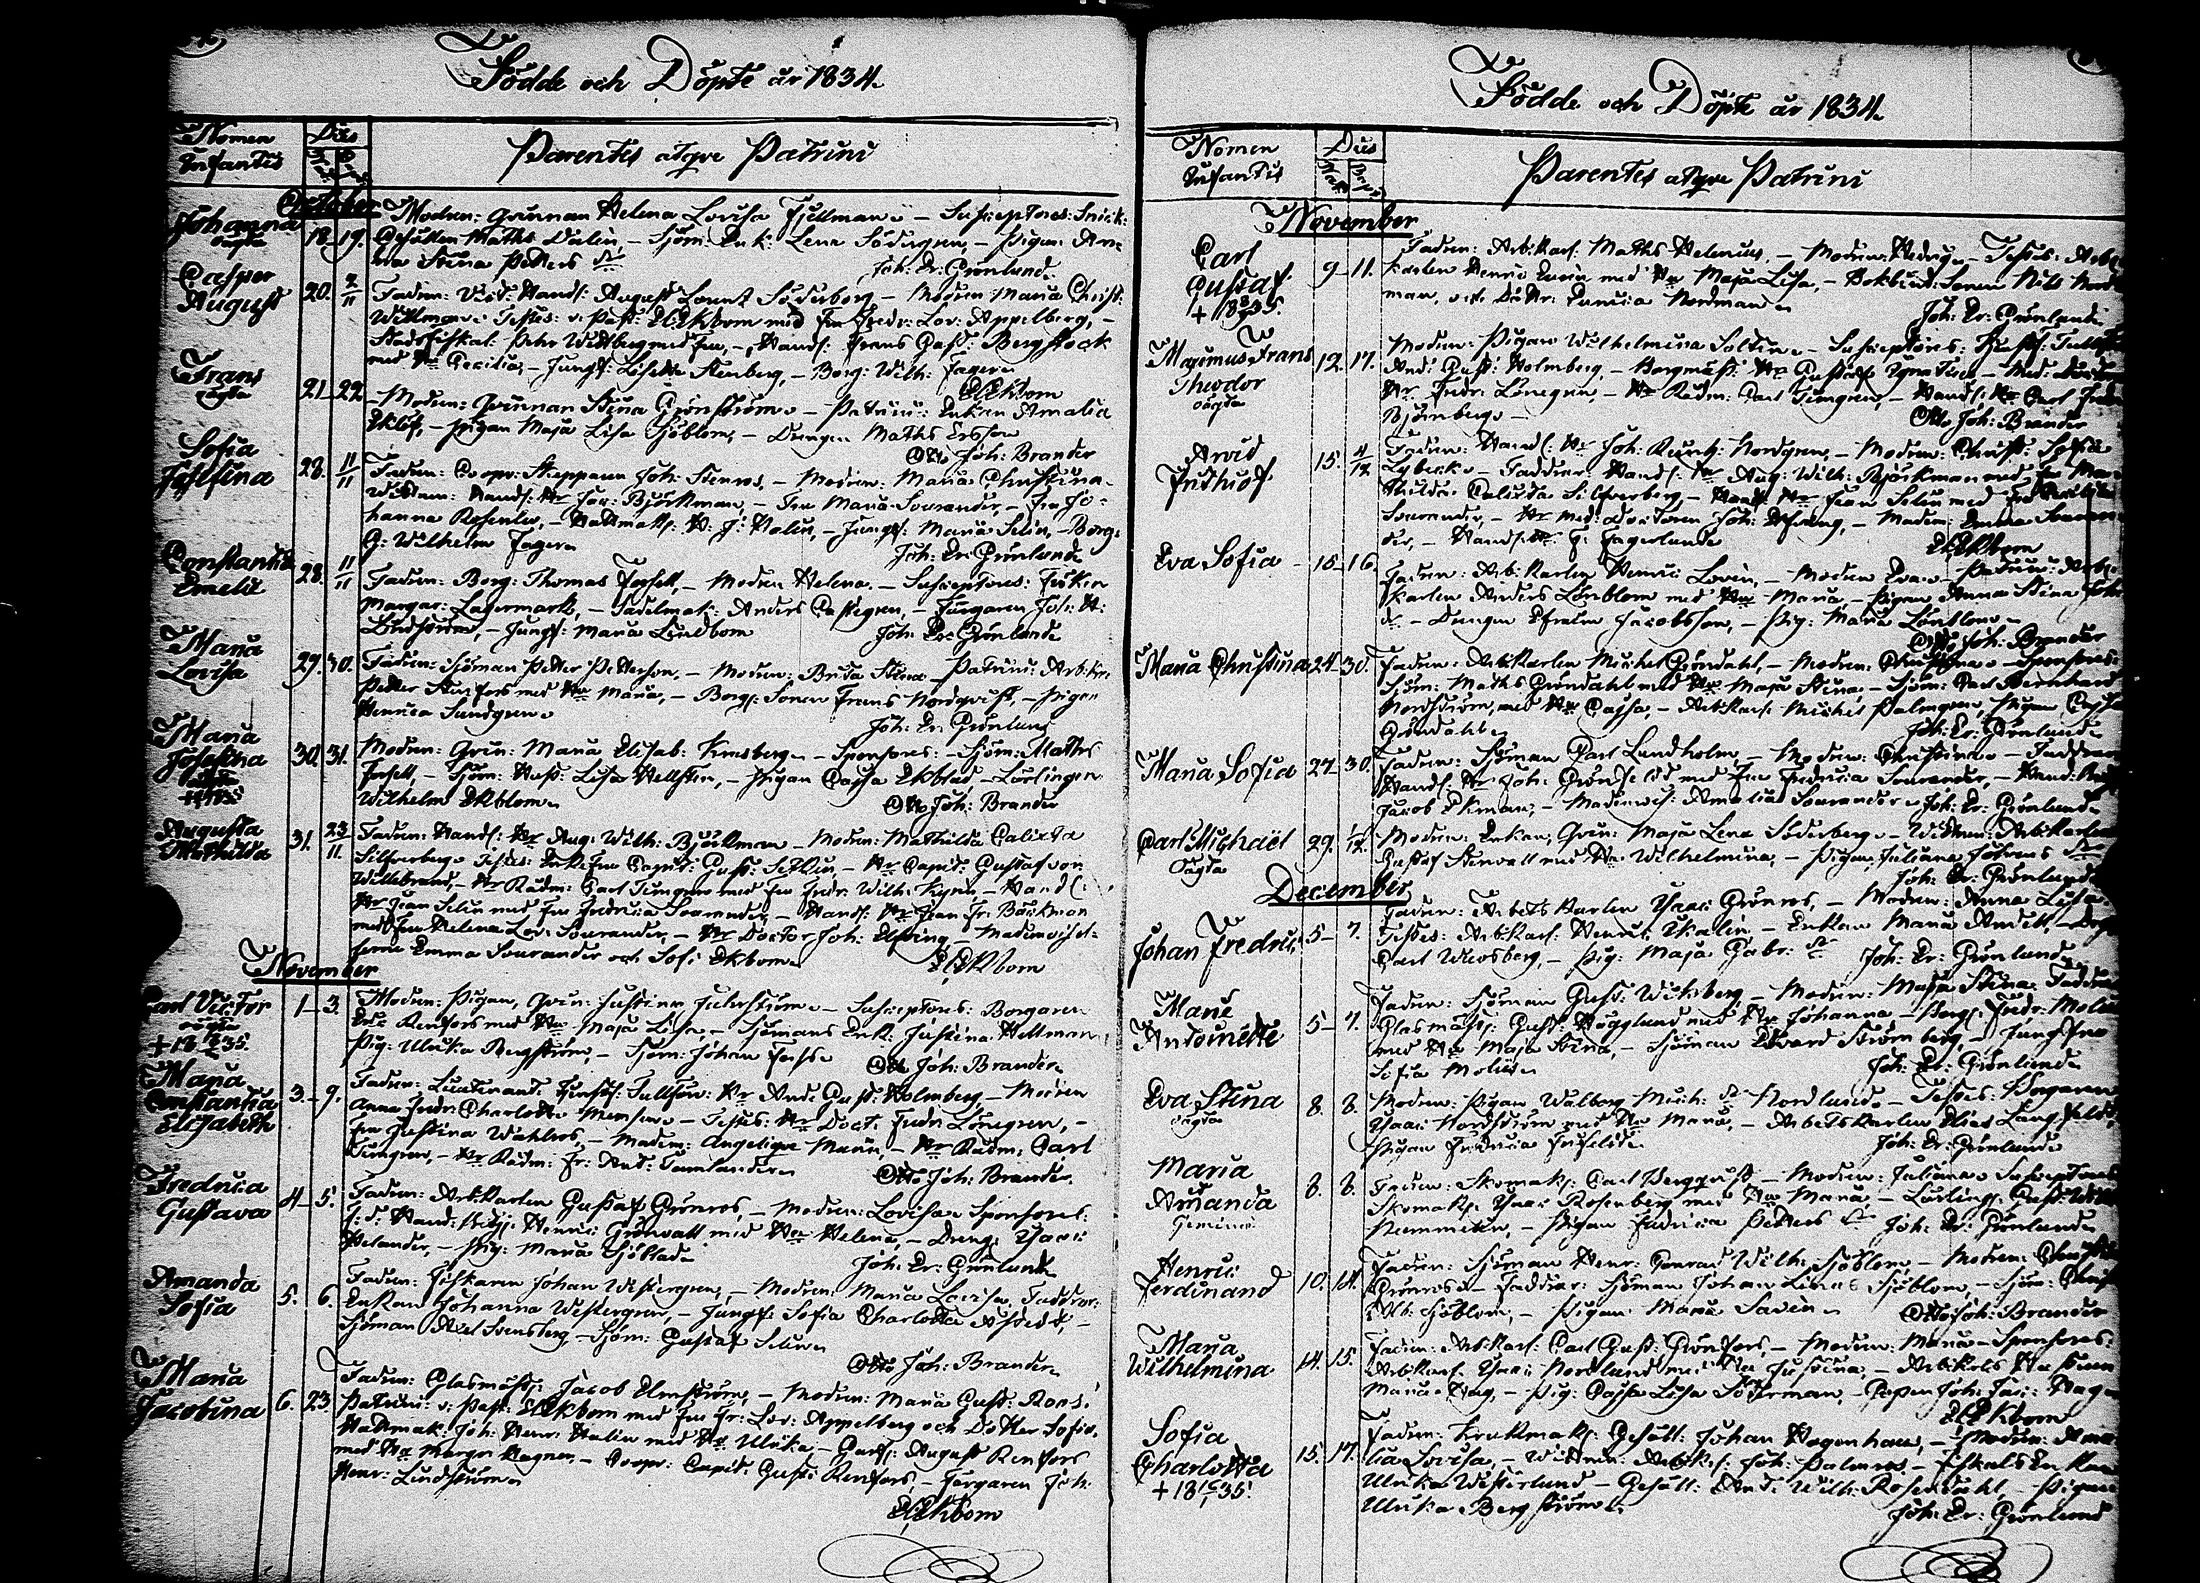 Födde och Döpte år 1834.
Nomen Infantis
Dies
Parentes atqve Patrini
October
Johanna
oägta
18. 19.
Modren: Qvinnan Helena Lovisa Fjellman. — Susceptores: Snick:
Gesällen Maths Dalin, — Sjöm: Enk: Lena Södergren, — Pigan An-
na Stina Petters dr
Joh: Er: Grönlund.
Casper
August
20. 2/11
Fadren: Vict: Handl: August Lorentz Söderborg — Modren Maria Christ:
Wittman. Testes: v. Past: Ekbom med Fru Fredr: Lov: Appelberg, —
Stadsfiskal: Pehr Widtberg med Fru, — Handl: Frans Gust: Bergstock
med Hu Cecilia, — Jungf: Lisette Stenberg, — Borg: Wilh: Fager.
Ekbom
Frans
oägta
21. 22.
Modren: Qvinnan Stina Grönström. — Patrini: Enkan Amalia
Eklöf, — Pigan Maja Lisa Sjöblom, — Drengen Maths Ersson
Otto Joh: Brander
Sofia
Josefina
28. 11/11
Fadren: Coopv: Skepparen Joh: Stenros, — Modren: Maria Christina.
Wittnen: Handl: Hr Jac: Björkman, — Fru Maria Sourander, — Fru Jo-
hanna Rosenlew, — Hattmak: H. J: Malin, — Jungf: Maria Selin, — Borg:
G: Wilhelm Fager
Joh: Er: Grönlund
Constantia
Emelie
28. 11/11
Fadren: Borg: Thomas Forsell, — Modren Helena. — Susceptores: Enkan
Margar: Lagermark, — Sadelmak: Anders Castegren, — Färgaren Joh: H:
Lindström, — Jungf: Maria Lindbom
Joh: Er: Grönlund
Maria
Lovisa
29. 30.
Fadren: Sjöman Petter Petterson, — Modren: Brita Stina — Patrini: Arb:karl
Petter Stenfors med Hu Maria, — Borg: Sonen Frans Nordqvist, — Pigan
Henrica Sundgren.
Joh: Er: Grönlund
Maria
Josefina
30. 31.
Modren: Qvin: Maria Elisab: Kransberg — Sponsores: Sjöm: Maths
Forsell, — Sjöm: Hust: Lisa Hellsten, — Pigan Cajsa Ekblad — Lärlingen
Wilhelm Ekblom.
Otto Joh: Brander
Augusta
Mathilda
31. 23/11.
Fadren: Handl: Hr Aug: Wilh: Björkman — Modren: Mathilda Calixta
Silfverberg. Testes: Enkefru Capit: Gust: Setkin, — Hr Capit: Gustaf von
Willebrand, — Hr Rådm: Carl Timgren med Fru Fredr: Wilh: Kynn, — Handl:
Hr Jean Selin med Fru Fredrica Sourander, — Handl: Hr Jean Fr: Bäckman
med Fru Helena Lov: Sourander, — Hr Doctor Joh: Elfving — Mademoisel-
lerne Emma Sourander och Sofi Ekbom.
Ekbom
November
Carl Victor
oägta
1. 3.
Modren: Pigan, Qvin: Justina Julerström — Susceptores: Borgaren
Eric Renfors med Hu Maja Lisa, — Sjömans Enk: Justina Hellman,
Pig: Ulrika Bergström, — Sjöm: Johan Forss.
Otto Joh: Brander.
Maria
Constantia
Elisabeth
3. 9.
Fadren: Lieutenant Tenstf: Tullförv: Hr And: Gust: Holmberg — Modren
Anna Fredr: Charlotta Mensen. — Testes: Hr Doct: Fredr: Lönegren, —
Fru Justina Wahlros, — Madem: Angelique Mann, — Hr Rådm: Carl
Timgren, — Hr Rådm: Fr: Ant: Tamlander.
Otto Joh: Brander
Fredrica
Gustava
4. 5.
Fadren: Arb:karlen Gustaf Grönros, — Modren: Lovisa Sponsores:
Henric Grönvall med Hu Helena, — Dreng: Isaac
Helander, — Pig: Maria Sjöblad
Joh: Er: Grönlund
Amanda
Sofia
5. 6.
Fadren: Fiskaren Johan Westergren, — Modren: Maria Lovisa, Faddrar:
Enkan Johanna Westergren, — Jungf: Sofia Charlotta
Sjöman Axel Svensberg — Sjöm: Gustaf Selin
Otto Joh: Brander
Maria
Jacobina
6. 23
Fadren: Glasmäst: Jacob Elmström, — Modren: Maria Gust: Roos,
Patrini: v. Past: Ekbom med Fru Fr: Lov: Appelberg och Dotter Sofie,
Hattmak: Joh: Henr: Malin med Hu Ulrika — Garf: August Renfors
med Hu Margr: Wagner, — Coopv: Capit: Gust: Renfors, — Färgaren Joh:
Henr: Lindström
Ekbom
Födde och Döpte år 1834.
Nomen Infantis
Dies
Parentes atqve Patrini
November
Carl
Gustaf
9. 11.
Fadren: Arb:karl: Maths Helenius, — Modren: Hedvig — Testes: Arb:
karlen Henric Levin med Hu Maja Lisa, — Bokbind: Sonen Nils Nord-
man, och Dottr: Eunicia Nordman
Joh: Er: Grönlund
Maximus Frans
Theodor
oägta
12. 17.
Modren: Pigan Wilhelmina Soldin. — Susceptores:
And: Gust: Holmberg, — Borgmäst: Hr Gustaf Ignatius — Med: Doctor
Hr Fredr: Lönegren, — Hr Rådm: Carl Timgren, — Handl: Hr Carl Fredr:
Björnberg —
Otto Joh: Brander
Arvid
Fridhiof
15. 4/12
Fadren: Handl: Hr Joh: Reinh: Nordgren, — Modren: Christ: Sofia
Lybeck. — Faddrar: Handl: Hr Aug: Wilh: Björkman med Fru Ma-
thilda Calixta Silfverberg, — Handl: Hr Jean Selin med Fru Fredrika
Sourander, — Hr Med: Doctoren Joh: Elfving, — Madem: Emma Souran-
der, — Handl: Hr F: Fagerlund
Ekbom
Eva Sofia
15. 16.
Fadren: Arb:karlen Henric Lovin, — Modren Eva. — Patrini: Arb:
karlen Anders Lönblom med Hu Maria — Pigan Anna Stina Joh:
dr — Drengen Efraim Jacobsson, — Pig: Maria Lönblom —
Otto Joh: Brander
Maria Christina
24. 30.
Fadren: Arb:karlen Michel Gröndahl, — Modren: Christina — Sponsores:
Sjöm: Maths Gröndahl med Hu Maja Stina, — Sjöm: Carl Bernhard
Nordström, med Hu Cajsa, — Arb:karl: Michel Palmgren, Pigan Cajsa
Gröndahl
Joh: Er: Grönlund
Maria Sofia
27. 30.
Fadren: Sjöman Carl Lundholm, — Modren: Christina — Faddrar
Handl: Hr Joh: Grönfelt med Fru Fredrica Sourander, — Hand:
Jacob Ekman, — Mademois: Amalia Sourander. Joh: Er: Grönlund
Carl Michael
oägta
29. 1/12.
Modren: Enkan, Qvin: Maja Lena Söderberg. — Wittnen: Arb:karlen
Gustaf Stenvall med Hu Wilhelmina, — Pigan Juliana Johans dr
Joh: Er: Grönlund
December
Johan Fredric
5. 7.
Fadren: Arbets karlen Isaac Grönros, — Modren: Anna Lisa
Testes: Arb:karl: Henric Malin — Enkan Maria Andell,
Carl Wiksberg, — Pig: Maja Gabr: dr
Joh: Er: Grönlund
Marie
Antoinette
5. 7.
Fadren: Sjöman Gust: Wiksberg, — Modren: Maja Stina. Faddrar
Glasmäst: Gust: Högglund med Hu Johanna — Borg: Fredr: Molin
med Hu Maja Stina, — Sjöman Edvard Strömberg, — Jungfru
Sofia Molin
Joh: Er: Grönlund
Eva Stina
oägta
8. 8.
Modren: Pigan Walborg Mich: dr Nordlund. — Testes: Borgaren
Isaac Nordström med Hu Maria, — Arbetskarlen Elias Långfeldt,
Pigan Fredrica
Joh: Er: Grönlund
Maria
et
Amanda
Gemini
8. 8.
Fadren: Skomak: Carl Bergqvist — Modren: Juliana. Susceptores:
Skomak: Isaac Rosenberg med Hu Maria, — Lärling: Gust: Wilh:
Nummelin, — Pigan Fredricia Petters dr Joh: Er: Grönlund
Henric
Ferdinand
10. 14.
Fadren: Sjöman Henr: Conrad Wilh: Sjöblom — Modren: Christ:
Grönros. — Faddrar: Sjöman Johan Linus Sjöblom, — Sjöm:
Alb: Sjöblom, — Pigan: Maria Savin.
Otto Joh: Brander
Maria
Wilhelmina
14. 15.
Fadren: Arb:karl: Carl Gust: Grönfors, — Modren: Maria — Sponsores:
Arb:karl: Isaac Nordlund med Hu Justina, — Arb:karls Hustrun
Maria Hag, — Pig: Cajsa Lisa Söderman, — Gossen Joh: Jac: Hag
Ekbom
Sofia
Charlotta
15. 17.
Fadren: Krukmak: Gesäll: Johan Hagenhaus, — Modren: Ama-
lia Lovisa, — Wittnen: Arb:kl: Joh: Palmros — Fiskals Enkan
Ulrika Westerlund — Gesäll: And: Wilh: Rosendahl, — Pigan
Ulrika Bergström
Joh: Er: Grönlund